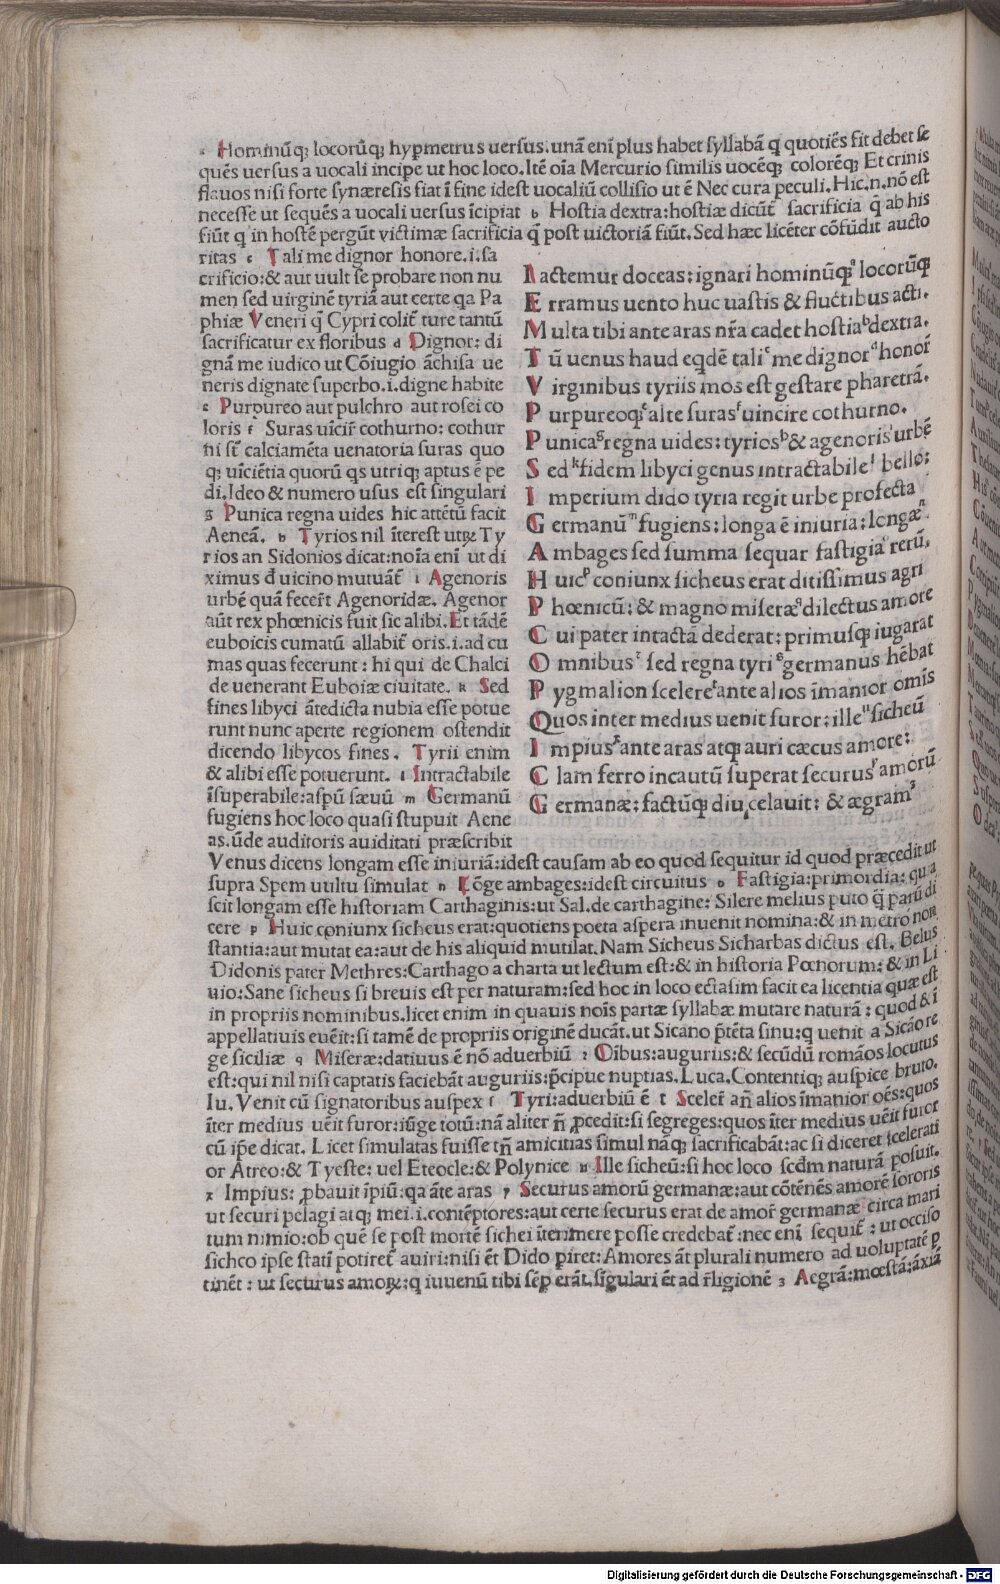 a Hominūq; locorūq; hypmetrus uersus. unā eni plus habet syllabā q quotiēs fit debet se
quēs uersus a uocali incipe ut hoc loco. Itē oīa Mercurio similis uocēq; colorēq; Et crinis
flauos nisi forte synæresis fiat ī fine idest uocaliū collisio ut ē Nec cura peculi. Hic.n.nō est
necesse ut sequēs a uocali uersus īcipiat b Hostia dextra: hostiæ dicūt̄ sacrificia q̄ ab his
fiūt q in hostē pergūt victimæ sacrificia q̄ post uictoriā fiūt. Sed hæc licēter cōfūdit aucto
ritas c Tali me dignor honore.i.sa
crificio: & aut uult se probare non nu
men sed uirginē tyriā aut certe qa Pa
phiæ Veneri q̄ Cypri colit̄ ture tantū
sacrificatur ex floribus d Dignor: di
gnā me iudico ut Cōiugio āchisa ue
neris dignate superbo.i.digne habite
e Purpureo aut pulchro aut rosei co
loris f Suras uīcir̄ cothurno: cothur
ni st̄ calciamēta uenatoria suras quo
q; uīciētia quorū qs utriq; aptus ē pe
di. Ideo & numero usus est singulari
g Punica regna uides hic attētū facit
Aeneā. h Tyrios nil īterest utꝝ Ty
rios an Sidonios dicat: noīa eni ut di
ximus đ uicino mutuāt̄ i Agenoris
urbē quā fecer̄t Agenoridæ. Agenor
aūt rex phœnicis fuit sic alibi. Et tādē
euboicis cumatū allabit̄ oris.i.ad cu
mas quas fecerunt: hi qui de Chalci
de uenerant Euboiæ ciuitate. k Sed
fines libyci ātedicta nubia esse potue
runt nunc aperte regionem ostendit
dicendo libycos fines. Tyrii enim
& alibi esse potuerunt. l Intractabile
īsuperabile: aspū sæuū m Germanū
fugiens hoc loco quasi stupuit Aene
as. ūde auditoris auiditati præscribit
Iactemur doceas: ignari hominūq;ᵃ locorūq;
Erramus uento huc uastis & fluctibus acti.
Multa tibi ante aras nr̄a cadet hostiaᵇ dextra.
Tū uenus haud eqdē taliᶜ me dignorᵈ honor̄
Virginibus tyriis mos est gestare pharetrā.
Purpureoq;ᵉ alte surasᶠ uincire cothurno.
Punicaᵍ regna uides: tyriosʰ & agenorisⁱ urbē
Sedᵏ fidem libyci genus intractabileˡ bello:
Imperium dido tyria regit urbe profecta
Germanūᵐ fugiens: longa ē iniuria: longæⁿ
Ambages sed summa sequar fastigiaᵒ rerū.
Huicᵖ coniunx sicheus erat ditissimus agri
Phœnicū: & magno miseræ dilectus amore
Cui pater intactā dederat: primusq; iugarat
Omnibusʳ sed regna tyri germanus hēbat
Pygmalion scelereᵗ ante alios īmanior omīs
Quos inter medius uenit furor: illeᵘ sicheū
Impius ante aras atq; auri cæcus amore:
Clam ferro incautū superat securusʸ amorū
Germanæ: factūq; diu celauit: & ægram
Venus dicens longam esse iniuriā: idest causam ab eo quod sequitur id quod præcedit ut
supra Spem uultu simulat n Lōge ambages: idest circuitus o Fastigia: primordia: qu a
scit longam esse historiam Carthaginis: ut Sal. de carthagine: Silere melius puto q̄ parū di
cere p Huic coniunx sicheus erat: quotiens poeta aspera inuenit nomina: & in metro non
stantia: aut mutat ea: aut de his aliquid mutilat. Nam Sicheus Sicharbas dictus est. Belus
Didonis pater Methres: Carthago a charta ut lectum est: & in historia Pœnorum: & in Li
uio: Sane sicheus si breuis est per naturam: sed hoc in loco ectasim facit ea licentia quæ est
in propriis nominibus. licet enim in quauis nois partæ syllabæ mutare naturā: quod & ī
appellatiuis euēit: si tamē de propriis originē ducāt. ut Sicano p̄tēta sinu: q uenit a Sicāo re
ge siciliæ q Miseræ: datiuus ē nō aduerbiū r Oībus: auguriis: & secūdū romāos locutus
est: qui nil nisi captatis faciebāt auguriis: p̄cipue nuptias. Luca. Contentiq; auspice bruto.
Iu. Venit cū signatoribus auspex s Tyri: aduerbiū ē t Sceler̄ añ alios īmanior oēs: quos
īter medius uēit furor: iūge totū: nā aliter ñ pcedit: si segreges: quos īter medius uēit furor
cū ip̄e dicat. Licet simulatas fuisse tñ amicitias simul nāq; sacrificabāt: ac si diceret scelerati
or Atreo: & Tyeste: uel Eteocle: & Polynice u Ille sicheū: si hoc loco scđm naturā posuit.
x Impius: pbauit īpiū: qa āte aras y Securus amorū germanæ: aut cōtēnēs amorē sororis
ut securi pelagi atq; mei.i.contēptores: aut certe securus erat de amor̄ germanæ circa mari
tum nimio: ob quē se post mortē sichei īterimere posse credebat̄: nec eni sequit̄: ut occiso
sicheo ipse statī potiret̄ auri: nisi ēt Dido piret: Amores āt plurali numero ad uoluptatē p
tinēt: ut securus amoꝝ: q iuuenū tibi semp erāt. sīgulari ēt ad r̄ligionē z Aegrā: mœstā: āxiā
Digitalisierung gefördert durch die Deutsche Forschungsgemeinschaft - DFG